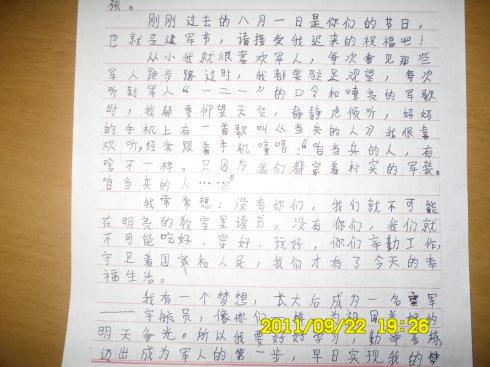 孩。
刚刚过去的八月一日是你们的节日,
也就是建军节,请接受我迟来的祝福吧!
从小我就很喜欢军人,每次看见那些
军人跑步路过时,我都要驻足观望,每次
听到军人“一二一”的口令和嘹亮的军歌
时,我都要仰望天空,静静地倾听,妈妈
的手机上有一首歌叫《当兵的人》我很喜
欢听,经常跟着手机哼唱:“咱当兵的人,有
啥不一样。只因为我们都穿着朴实的军装。
咱当兵的人……”
我常常想:没有你们,我们就不可能
在明亮的教室里读书,没有你们,我们就
不可能吃好、穿好、玩好,你们辛勤工作,
守卫着国家和人民,我们才有了今天的幸
福生活。
我有一个梦想,长大后成为一名空军
——宇航员,像你们一样,为祖国美好的
明天争光。所以我要好好学习,勤学苦练
迈出成为军人的第一步,早日实现我的梦
2011/09/22 19:26